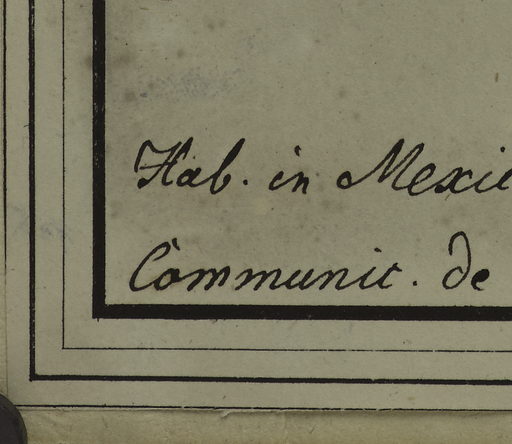 Hab. in Mexic
Communic. de